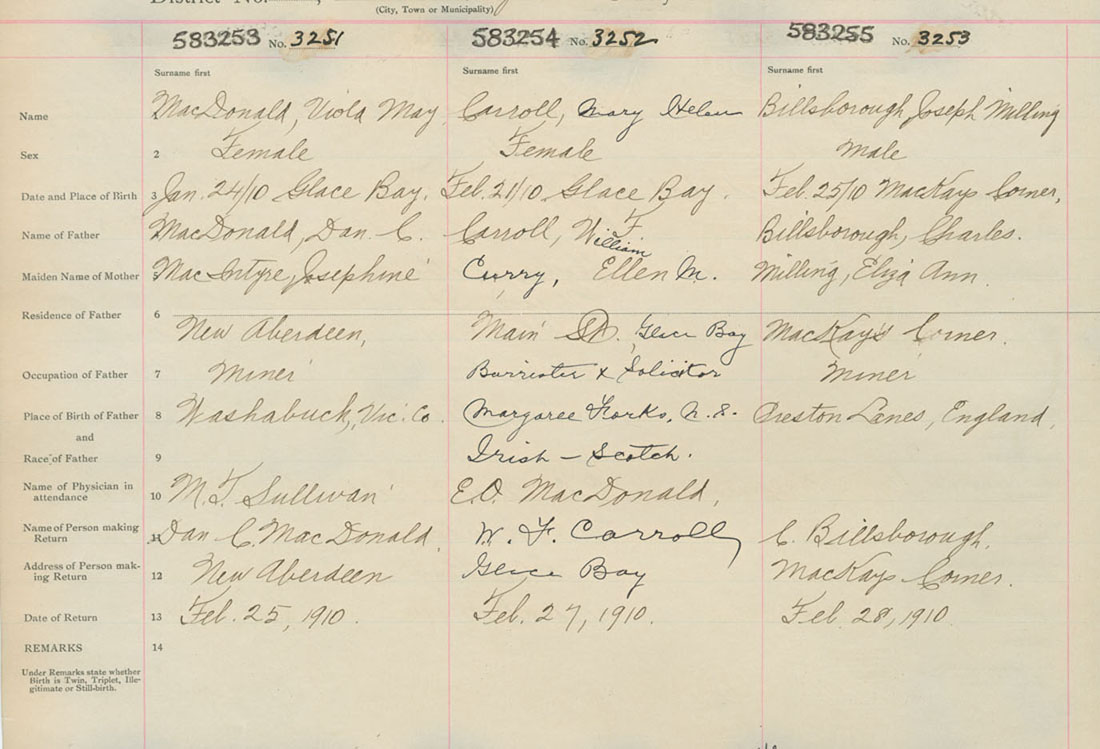 District No.
(City, Town or Municipality)
583253 No. 3251 583254 No. 3252 583255 No. 3253
Surname first Surname first Surname first
Name MacDonald, Viola May Carroll, Mary Helen Billsborough, Joseph Milling
Sex 2 Female Female Male
Date and Place of Birth 3 Jan. 24/10 Glace Bay. Feb. 21/10 Glace Bay. Feb. 25/10 MacKays Corner,
Name of Father MacDonald, Dan. C. Carroll, William F Billsborough, Charles.
Maiden Name of Mother MacIntyre, Josephine Curry, Ellen M. Milling, Eliza Ann.
Residence of Father 6 New Aberdeen, Main St. Glace Bay MacKay's Corner.
Occupation of Father 7 Miner Barrister & Solicitor Miner
Place of Birth of Father 8 Washabuck, Vic. Co. Margaree Forks, N.S. Preston Lanes, England,
and
Race of Father 9 Irish - Scotch.
Name of Physician in attendance 10 M. T. Sullivan E.O. MacDonald,
Name of Person making Return 11 Dan C. MacDonald. W. F. Carroll C. Billsborough.
Address of Person making Return 12 New Aberdeen Glace Bay MacKays Corner.
Date of Return 13 Feb. 25, 1910. Feb. 27, 1910. Feb. 28, 1910.
REMARKS 14
Under Remarks state whether
Birth is Twin, Triplet, Ille-
gitimate or Still-birth.